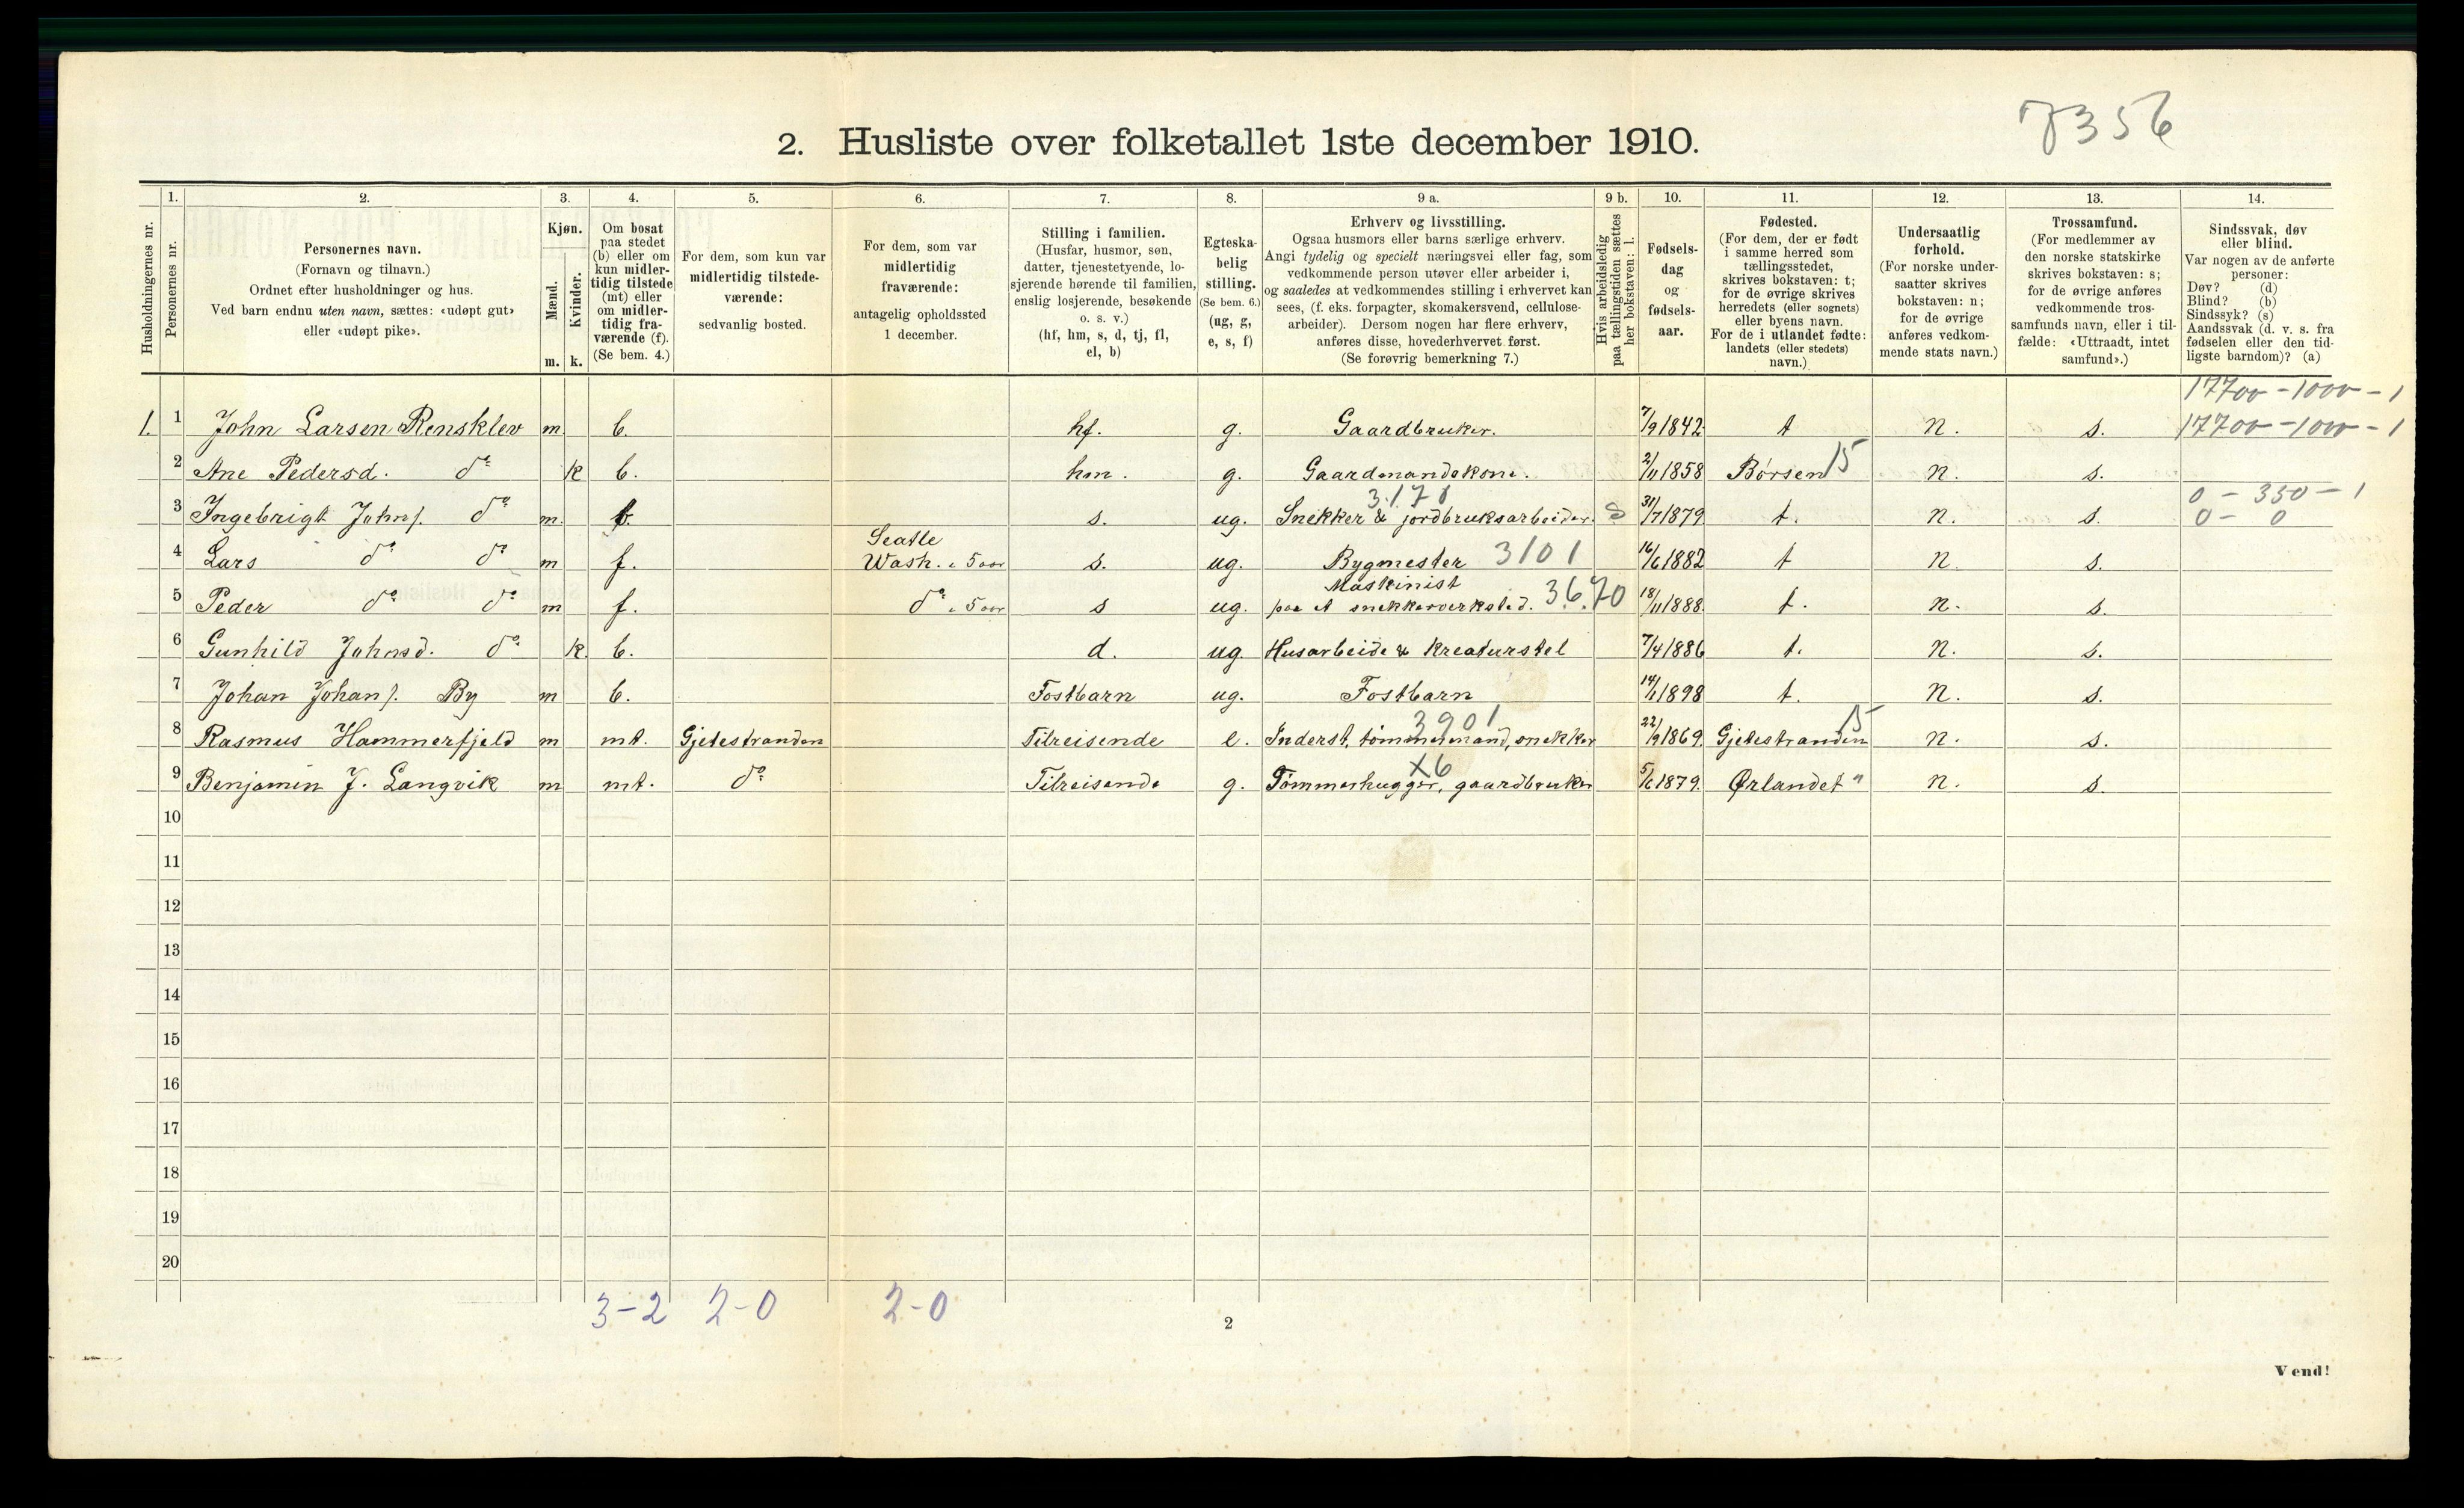 7356
2. Husliste over folketallet 1ste december 1910.
Husholdningernes nr.
1. Personernes nr.
2. Personernes navn.
(Fornavn og tilnavn.)
Ordnet efter husholdninger og hus.
Ved barn endnu uten navn, sættes: «udøpt gut»
eller «udøpt pike».
3. Kjøn.
Mænd. m.
Kvinder. k.
4. Om bosat
paa stedet
(b) eller om
kun midler-
tidig tilstede
(mt) eller
om midler-
tidig fra-
værende (f).
(Se bem. 4.)
5. For dem, som kun var
midlertidig tilstede-
værende:
sedvanlig bosted.
6. For dem, som var
midlertidig
fraværende:
antagelig opholdssted
1 december.
7. Stilling i familien.
(Husfar, husmor, søn,
datter, tjenestetyende, lo-
sjerende hørende til familien,
enslig losjerende, besøkende
o. s. v.)
(hf, hm, s, d, tj, fl,
el, b)
8. Egteska-
belig
stilling.
(Se bem. 6.)
(ug, g,
e, s, f)
9 a. Erhverv og livsstilling.
Ogsaa husmors eller barns særlige erhverv.
Angi tydelig og specielt næringsvei eller fag, som
vedkommende person utøver eller arbeider i,
og saaledes at vedkommendes stilling i erhvervet kan
sees, (f. eks. forpagter, skomakersvend, cellulose-
arbeider). Dersom nogen har flere erhverv,
anføres disse, hovederhvervet først.
(Se forøvrig bemerkning 7.)
9 b. Hvis arbeidsledig
paa tællingstiden sættes
her bokstaven: l.
10. Fødsels-
dag
og
fødsels-
aar.
11. Fødested.
(For dem, der er født
i samme herred som
tællingsstedet,
skrives bokstaven: t;
for de øvrige skrives
herredets (eller sognets)
eller byens navn.
For de i utlandet fødte:
landets (eller stedets)
navn.)
12. Undersaatlig
forhold.
(For norske under-
saatter skrives
bokstaven: n;
for de øvrige
anføres vedkom-
mende stats navn.)
13. Trossamfund.
(For medlemmer av
den norske statskirke
skrives bokstaven: s;
for de øvrige anføres
vedkommende tros-
samfunds navn, eller i til-
fælde: «Uttraadt, intet
samfund».)
14. Sindssvak, døv
eller blind.
Var nogen av de anførte
personer:
Døv? (d)
Blind? (b)
Sindssyk? (s)
Aandssvak (d. v. s. fra
fødselen eller den tid-
ligste barndom)? (a)
17700-1000-1
1. 1 John Larsen Rensklev m. b. hf. g. Gaardbruker. 7/9 1842 t n. s. 17700-1000-1
2 Ane Pedersd. do k b. hm. g. Gaardmandskone. 2/11 1858 Børsen 15 n. s.
3171 0 - 350 - 1
3 Ingebrigt Johns. do m. b. s. ug. Snekker & jordbruksarbeider. S 31/7 1879 t. n. s. 0 - 0
Seatle
4 Lars do do m f. Wash. i 5 aar s. ug. Bygmester 3101 16/6 1882 t n. s.
Maskinist
5 Peder do do m f. do i 5 aar s ug. paa et snekkerverksted. 3670 18/11 1888 t. n. s.
6 Gunhild Johnsd. do k b. d. ug. Husarbeide & kreaturstel 7/4 1886 t. n. s.
7 Johan Johans. By m b. Fostbarn ug. Fostbarn 14/1 1898 t. n. s.
3901 15
8 Rasmus Hammerfjeld m mt. Gjetestranden Tilreisende e. Inderst, tømmermand, snekker 22/9 1869 Gjetestranden n. s.
X6
9 Benjamin J. Langvik m mt. do Tilreisende g. Tømmerhugger, gaardbruker 5/6 1879. Ørlandet " n. s.
10
11
12
13
14
15
16
17
18
19
20
3-2 2-0 2-0
2
Vend!